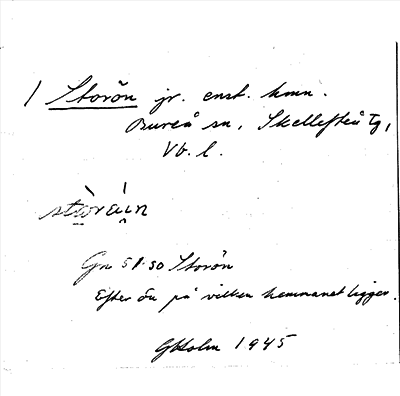 1 Storön jr. enst. hmn.
Bureå sn, Skellefteå tg,
Vb. l.
Gn 51.50 Storön
Efter ön på vilken hemmanet ligger.
GHolm 1945